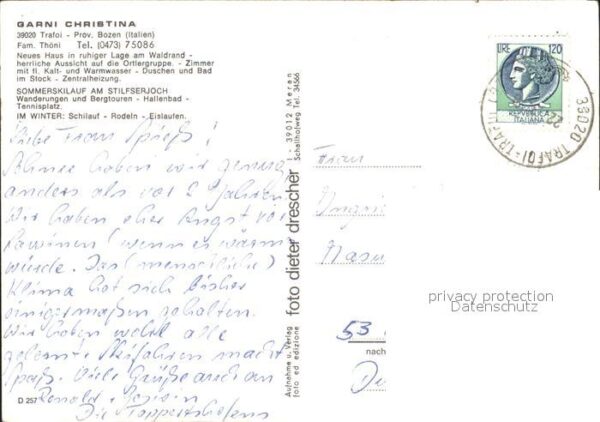 GARNI CHRISTINA
39020 Trafoi - Prov. Bozen (Italien)
Fam. Thöni Tel. (0473) 75086
Neues Haus in ruhiger Lage am Waldrand -
herrliche Aussicht auf die Ortlergruppe. - Zimmer
mit fl. Kalt- und Warmwasser - Duschen und Bad
im Stock - Zentralheizung.
SOMMERSKILAUF AM STILFSERJOCH
Wanderungen und Bergtouren - Hallenbad -
Tennisplatz.
IM WINTER: Schilauf - Rodeln - Eislaufen.
Liebe Frau Spieß!
Schnee haben wir genug
anders als vor 2 Jahren.
Wir haben eher Angst vor
Lawinen (wenn es wärmer
würde. Das (menschliche)
Klima hat sich bisher
einigermaßen gehalten.
Wir haben wohl alle
gelernt. Skifahren macht
Spaß. Viele Grüße auch an
Ronald +
Die
D 257
foto dieter drescher
I - 39012 Meran
Schallhofweg Tel. 34566
Aufnahme u. Verlag
foto ed edizione
LIRE 120
REPVBBLICA
ITALIANA
39020 TRAFOI - TRAFOI
22
Frau
53
nach
privacy protection
Datenschutz